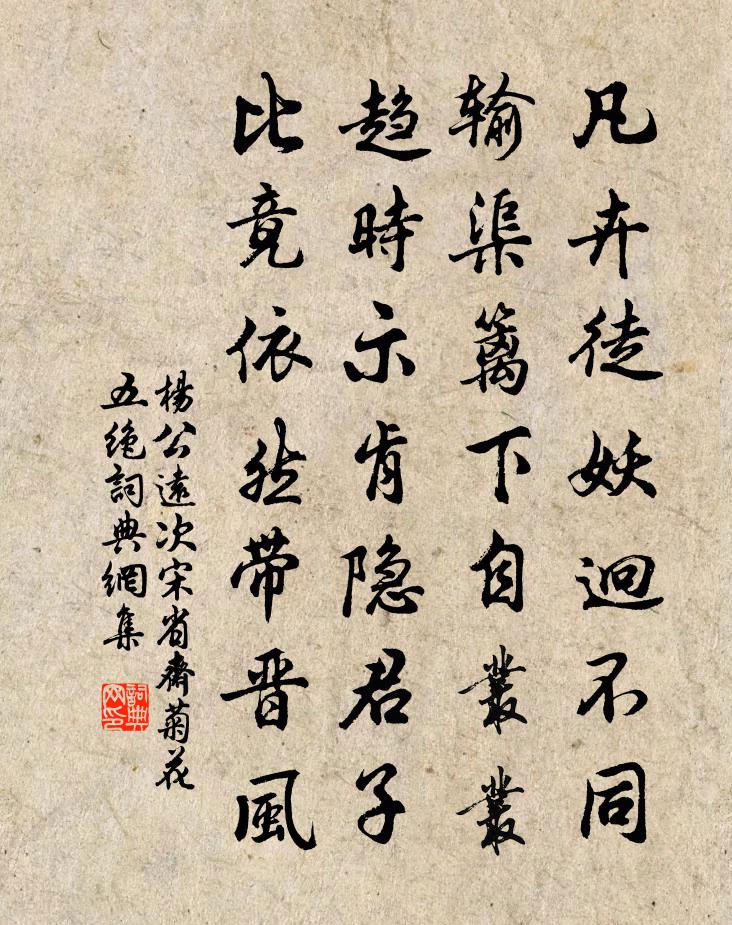 凡卉徒妖迥不同
输渠篱下自叢叢
趋時示肯隐君子
比竟依然带晋風
楊公遠次宋省齋菊花
五绝詞典網集
詞典網印